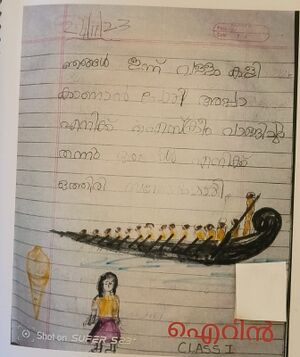 21/11/23
ഞങ്ങൾ ഇന്ന് വള്ളം കളി
കാണാൻ പോയി അപ്പാ
എനിക്ക് ഐസ്ക്രീം വാങ്ങിച്ചു
തന്നു എനിക്ക്
ഒത്തിരി
ഐറിൻ
CLASS I
Shot on SUPER